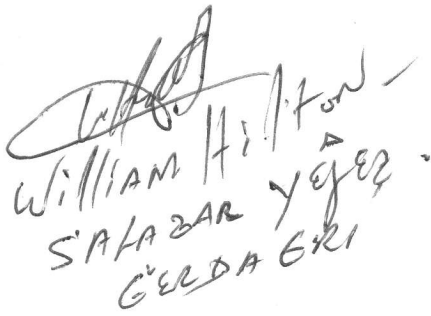 WilliAM Hilton
SALAZAR YÉPEZ.
GERDA ERI